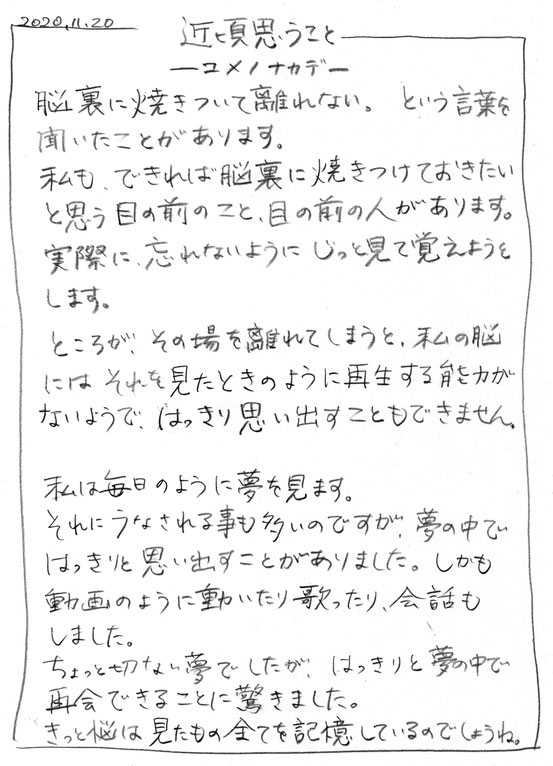 2020,11.20
近頃思うこと
ーユメノナカデー
脳裏に焼きついて離れない。 という言葉を
聞いたことがあります。
私も、できれば脳裏に焼きつけておきたい
と思う目の前のこと、目の前の人があります。
実際に、忘れないようにじっと見て覚えようと
します。
ところが、その場を離れてしまうと、私の脳
には それを見たときのように再生する能力が
ないようで、はっきり思い出すこともできません。
私は毎日のように夢を見ます。
それにうなされる事も多いのですが、夢の中で
はっきりと思い出すことがありました。しかも
動画のように動いたり歌ったり、会話も
しました。
ちょっと切ない夢でしたが、はっきりと夢の中で
再会できることに驚きました。
きっと脳は見たもの全てを記憶しているのでしょうね。